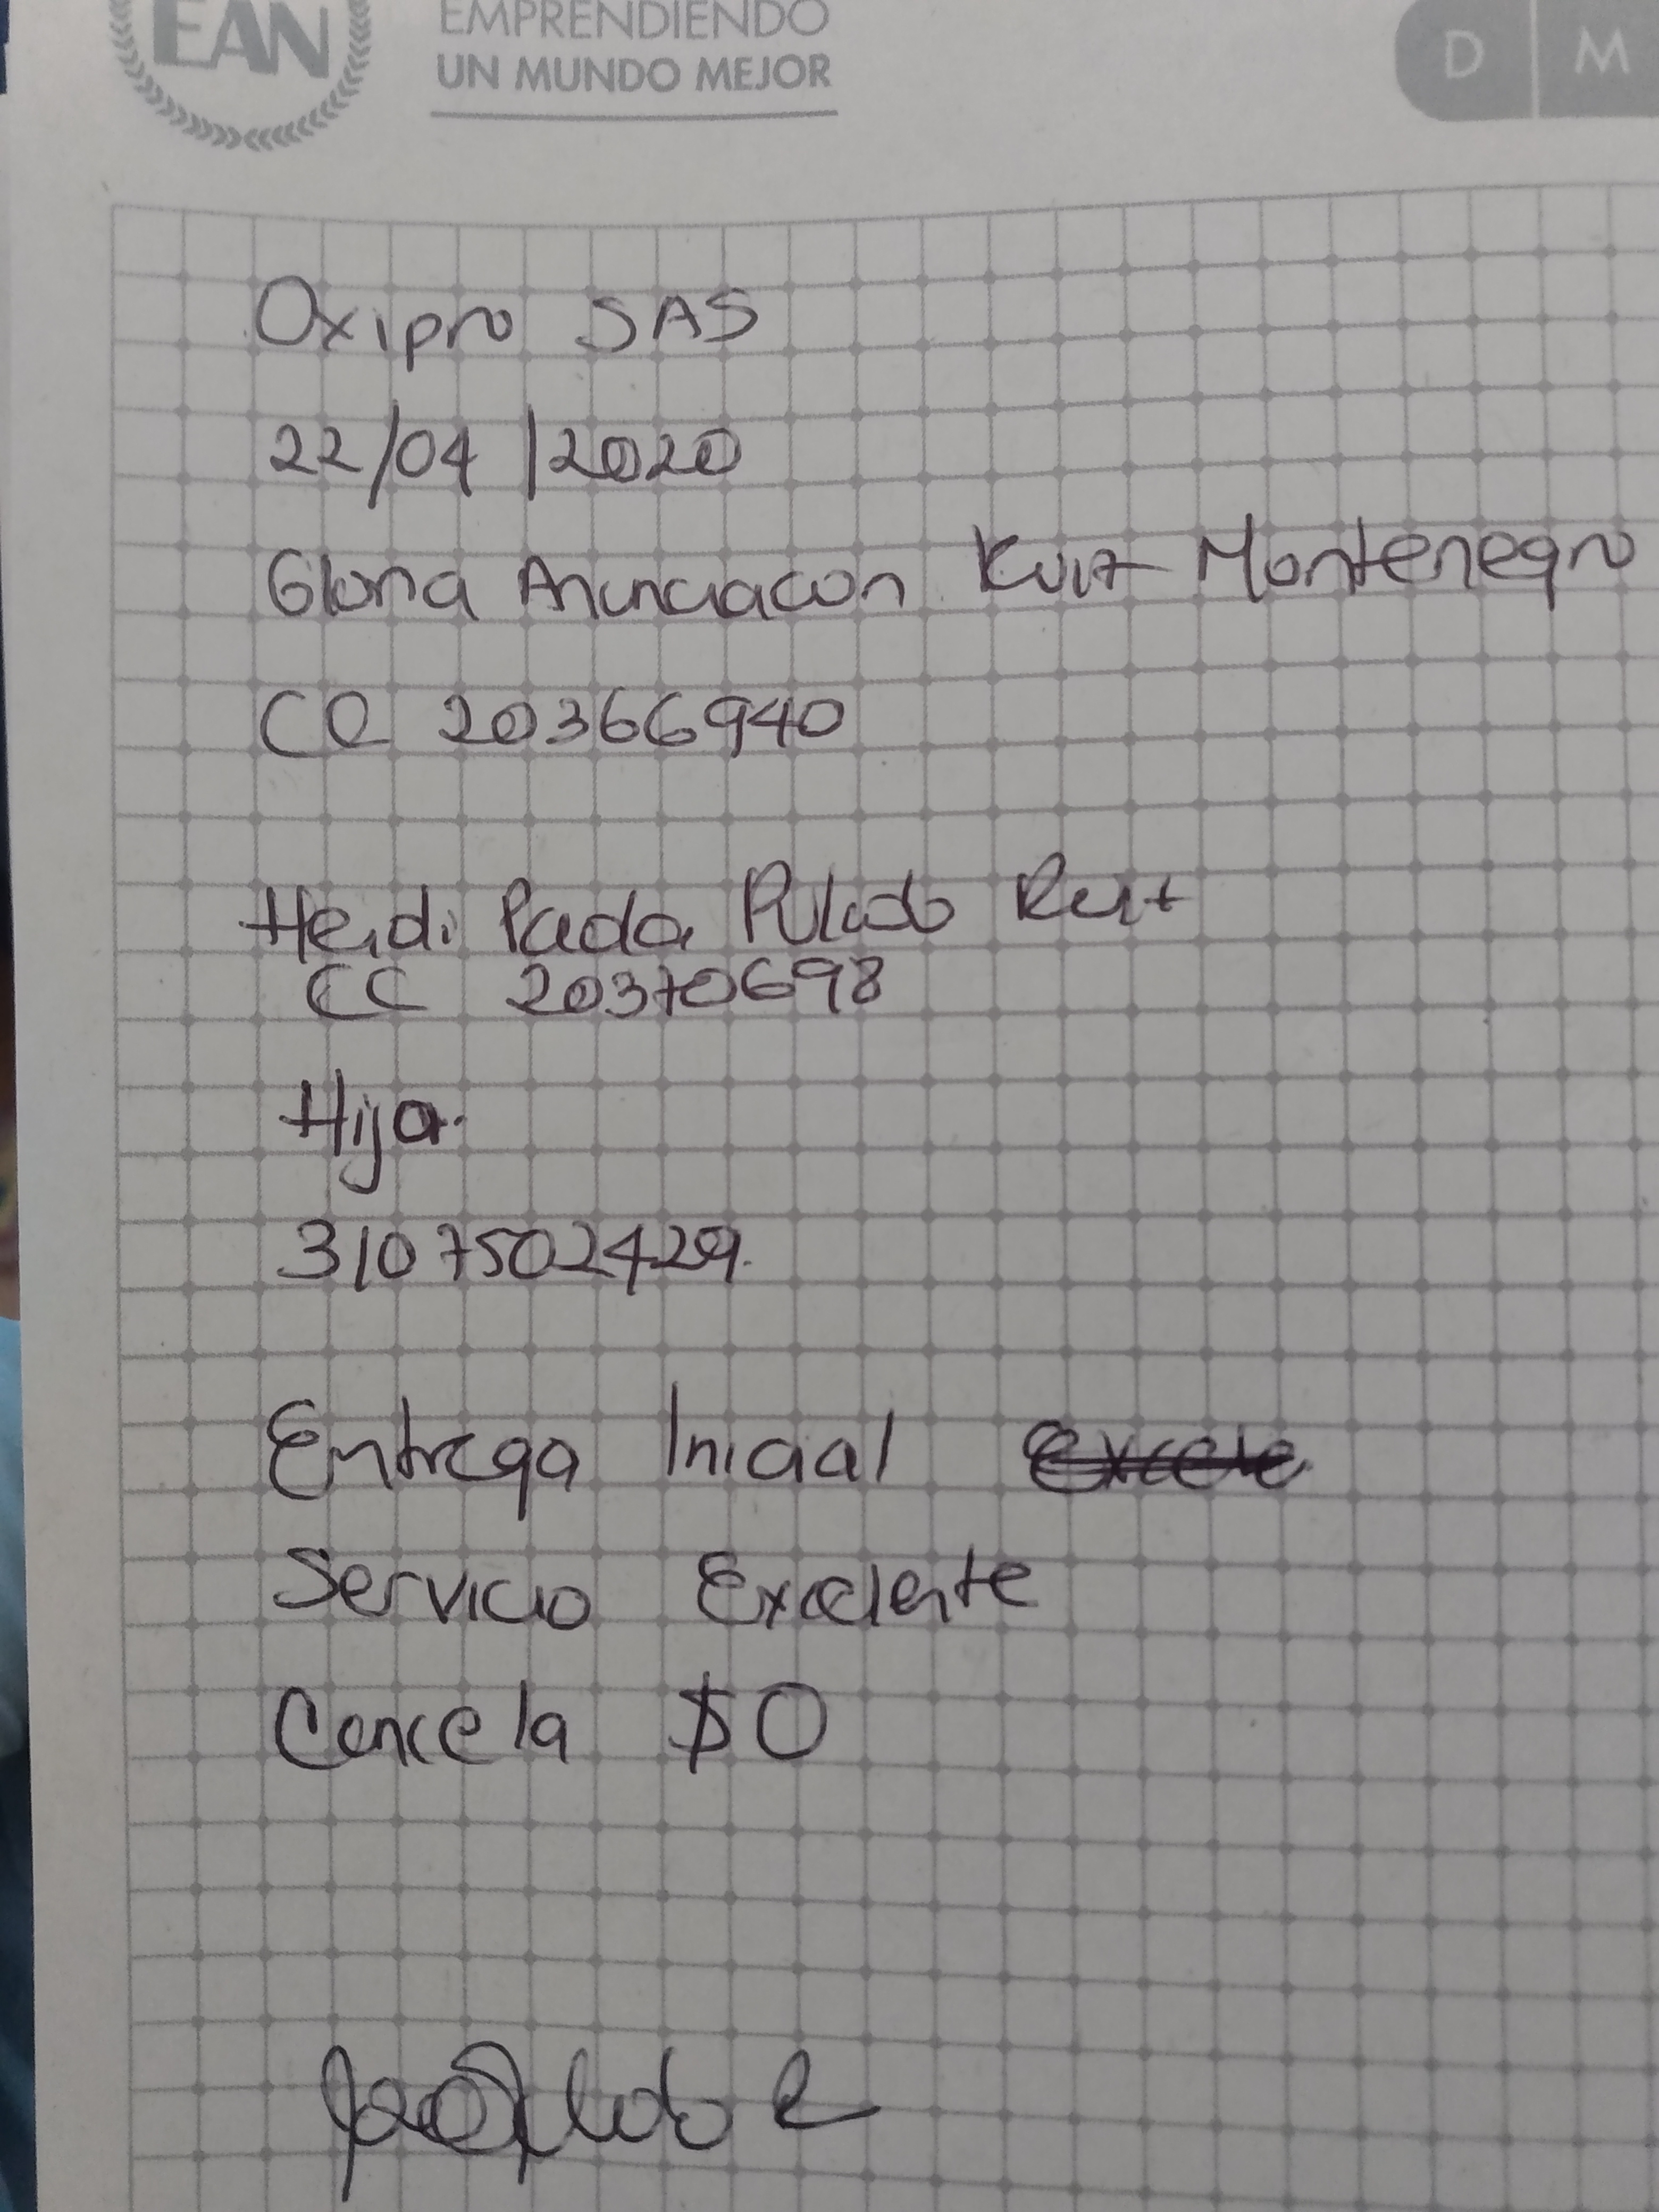 EAN
EMPRENDIENDO
UN MUNDO MEJOR
D M
Oxipro SAS
22/04/2020
Gloria Anunciacion Ruiz Montenegro
CC 20366940
Heidi Paola Pulido Ruiz
CC 20370698
Hija.
3107502429.
Entrega Inicial
Servicio Excelente
Cancela $0